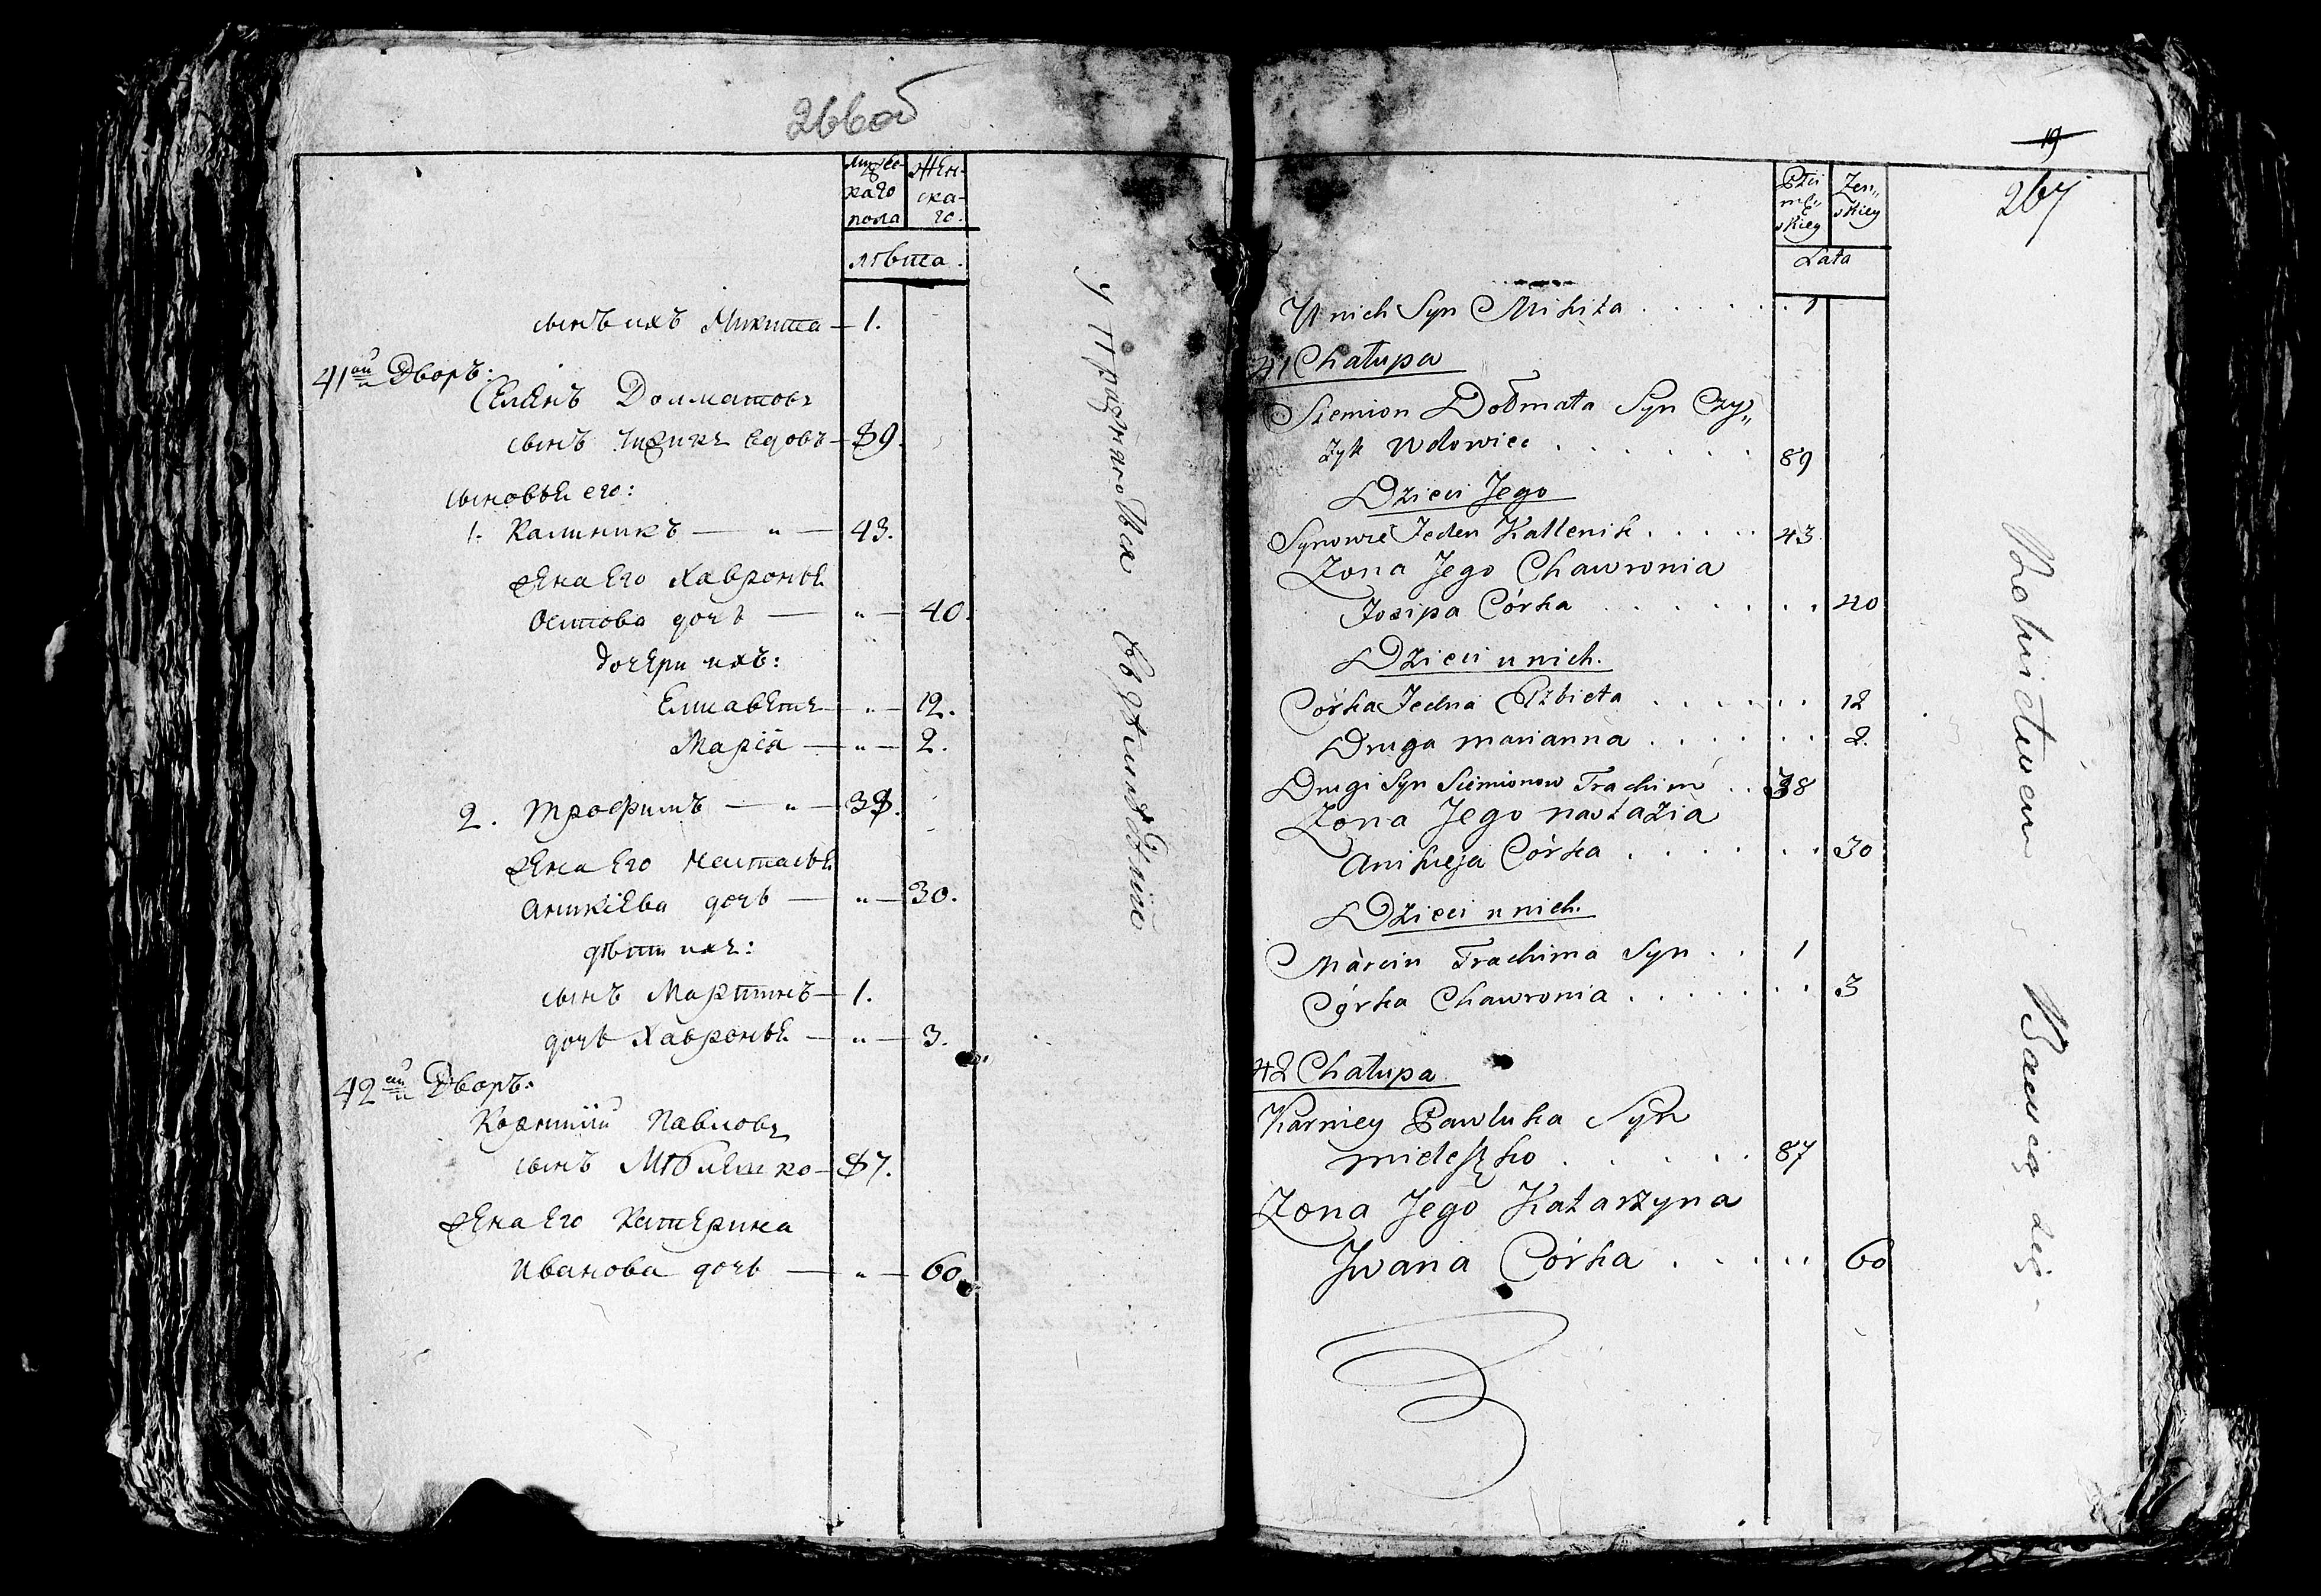 266об
мужес-
каго
пола
Жен-
ска-
го.
лѣта.
сынъ ихъ Микита — 1.
41ый Дворъ:
Семенъ Долматовъ
сынъ Чижикъ вдовъ — 89.
сыновья его:
1. Калиникъ — „ — 43.
жена его Хавронья
Осипова дочь — „ — 40.
дочери ихъ:
Елисавета — „ — 12.
Марія — „ — 2.
2. Трофимъ — „ — 38.
жена его Настасья
Аникіева дочь — „ — 30.
дѣти ихъ:
сынъ Мартинъ — 1.
дочь Хавронья — „ — 3.
42ый Дворъ:
Корнилій Павловъ
сынъ Мѣлешко — 87.
жена его Катерина
Иванова дочь — „ — 60.
у праздноства
19
267
Płci
męs„
skiey
Żen„
skiey
Lata
U nich Syn Mikita . . . . . . 1
41 Chałupa
Siemion Dołmata Syn Czy„
żyk Wdowiec . . . . . . 89
Dzieci Jego
Synowie Jeden Kallenik . . . . . 43
Żona Jego Chawronia
Josipa Córka . . . . . . . . 40
Dzieci u nich.
Córka Jedna Elżbieta . . . . . . 12
Druga marianna . . . . . . . 2.
Drugi Syn Siemionow Trachim . . 38
Żona Jego nastazia
Anikieja Córka . . . . . . . 30
Dzieci u nich.
Marcin Trachima Syn . . 1
Córka Chawronia . . . . . . . 3
42 Chałupa
Karniey Pawluka Syn
mieleszko . . . . . 87
Żona Jego Katarzyna
Jwana Córka . . . . . 60